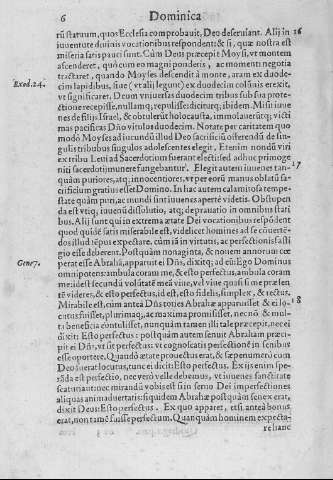 6
Dominica
rū statuum, quos Ecclesia comprobauit, Deo deseruiant. Alij in
iuuentute diuinis vocationibus respondent: & si, quæ nostra est
miseria satis pauci sunt. Cùm Deus præcepit Moysi, vt montem
ascenderet, quò cum eo magni ponderis, ac momenti negotia
tractaret, quando Moyses descendit à monte, aram ex duode-
cim lapidibus, siue (vt alij legunt) ex duodecim colūnis erexit,
vt significaret. Deum vniuersas duodecim tribus sub sua prote-
ctione recepisse, nullamq; repulisse: diciturq; ibidem. Misit iuue
nes de filijs Israel, & obtulerūt holocausta, immolauerūtq; victi
mas pacificas Dño vitulos duodecim. Notate per caritatem quo
modò Moyses ad iucundū illud Deo sacrificiū offerendū de sin-
gulis tribubus singulos adolescentes elegit. Etenim nondū viri
ex tribu Leui ad Sacerdotium fuerant electi: sed adhuc primoge
niti sacerdotij munere fungebantur. Elegit autem iuuenes tan-
quàm puriores, atq; innocentiores, vt per eorū manus oblatū sa-
crificium gratius esset Domino. In hac autem calamitosa tempe-
state quàm puri, ac mundi sint iuuenes apertè videtis. Obstupen
da est vtiq; iuuenū dissolutio, atq; deprauatio in omnibus stati
bus. Alij sunt qui in extrema ætate Dei vocationibus respōdent
quod quidē satis miserabile est, videlicet homines ad se cōuertē-
dos illud tēpus expectare, cùm iā in virtutis, ac perfectionis fasti
gio esse deberent. Postquàm nonaginta, & nouem annorum cœ
perat esse Abrahā, apparuit ei Dñs, dixitq; ad eū: Ego Dominus
omnipotens: ambula coram me, & esto perfectus, ambula coram
me: idest secundū volūtatē meā viue, vel viue quasi si me præsen
tē videres, & esto perfectus, id est, esto fidelis, simplex, & rectus.
Mirabile est, cùm antea Dūs toties Abrahæ apparuisset & ei lo-
cutus fuisset, plurimaq; ac maxima promisisset, necnō & mul-
ta beneficia contulisset, nunquàm tamen illi tale præcepit, nec ei
dixit: Esto perfectus: postquàm autem senuit Abraham præci-
pit ei Dñs, vt sit perfectus: vt cognoscatis perfectionē in senibus
esse oportere. Quando ætate prouectus erat, & sæpenumerò cum
Deo fuerat locutus, tunc ei dicit: Esto perfectus. Ex ijs enim spe-
rāda est perfectio, nec verò velle debemus, vt iuuenes sanctitate
scateant: nec mirandū vobis est si in seruo Dei imperfectiones
aliquas animaduertatis: siquidem Abrahæ postquàm senex erat,
dixit Deus: Esto perfectus. Ex quo apparet, etsi antea bonus
erat, non tamē fuisse perfectum. Quanquàm hominem expecta-
re hanc
Exod. 24.
Gene 7.
16
17
18